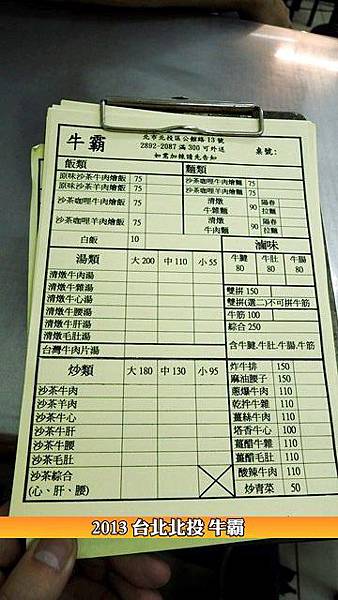 牛霸
北市北投區公館路13號
2892-2087滿300可外送
如需加辣請先告知
桌號:
飯類 麵類
原味沙茶牛肉燴飯 75 沙茶咖哩牛肉燴麵 75
原味沙茶羊肉燴飯 75 沙茶咖哩羊肉燴麵 75
沙茶咖哩牛肉燴飯 75 清燉牛雜麵 90 陽春 拉麵
沙茶咖哩羊肉燴飯 75 清燉牛肉麵 90 陽春 拉麵
白飯 10
滷味
湯類 大200 中110 小55
牛腱 80 牛肚 80 牛腸 80
清燉牛肉湯
清燉牛雜湯 雙拼150
清燉牛心湯 雙拼(選二)不可拼牛筋
清燉牛腰湯 牛筋100
清燉牛肝湯 綜合250
清燉毛肚湯
台灣牛肉片湯 含牛腱.牛肚.牛腸.牛筋
炒類 大180 中130 小95
炸牛排 150
麻油腰子 150
沙茶牛肉 蔥爆牛肉 110
沙茶羊肉 乾拌牛雜 110
沙茶牛心 薑絲牛肉 110
沙茶牛肝 塔香牛心 100
沙茶牛腰 薑醋牛雜 110
沙茶毛肚 薑醋毛肚 110
沙茶綜合 酸辣牛肉 110
(心、肝、腰) 炒青菜 50
2013 台北北投 牛霸